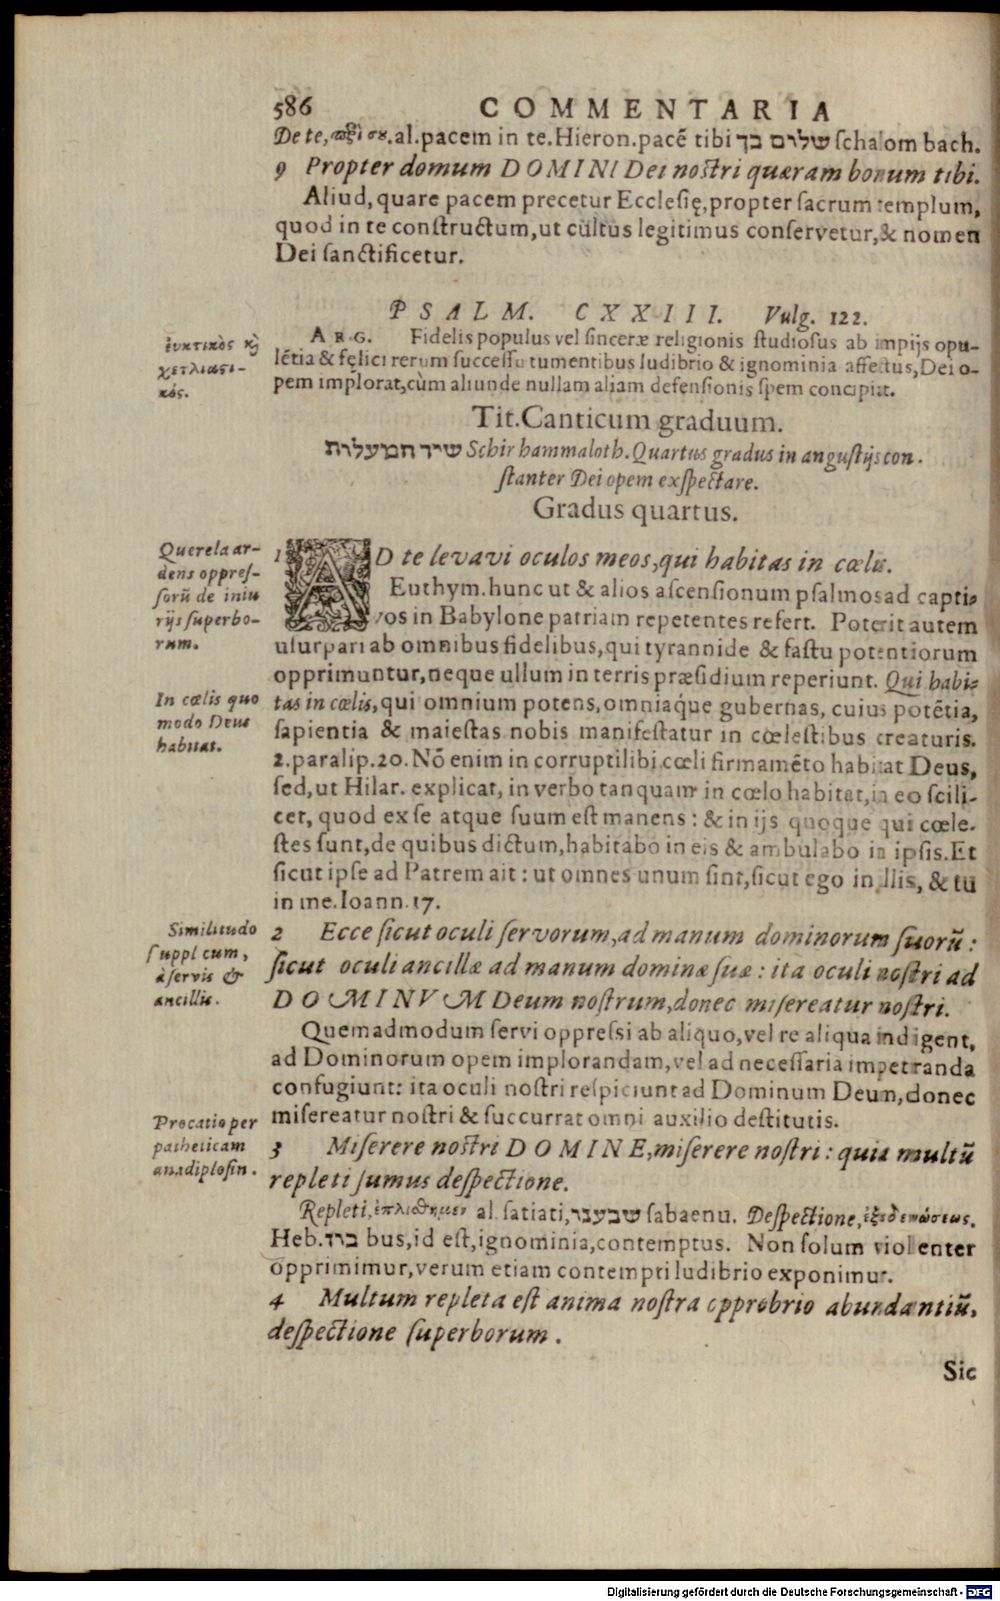 586 COMMENTARIA
De te, περὶ σε. al. pacem in te. Hieron. pacē tibi שלום בך schalom bach.
9 Propter domum DOMINI Dei nostri quæram bonum tibi.
Aliud, quare pacem precetur Ecclesię, propter sacrum templum,
quod in te constructum, ut cultus legitimus conservetur, & nomen
Dei sanctificetur.
PSALM. CXXIII. Vulg. 122.
ἐυκτικὸς κỳ
χετλιαςι-
κός.
ARG. Fidelis populus vel sinceræ religionis studiosus ab impijs opu-
lētia & fęlici rerum successu tumentibus ludibrio & ignominia affectus, Dei o-
pem implorat, cùm aliunde nullam aliam defensionis spem concipiat.
Tit. Canticum graduum.
שיר המעלות Schir hammaloth. Quartus gradus in angustijs con-
stanter Dei opem exspectare.
Gradus quartus.
Querela ar-
dens oppres-
sorū de iniu
rijs superbo-
rum.
1 AD te levavi oculos meos, qui habitas in cœlis.
Euthym. hunc ut & alios ascensionum psalmos ad capti-
vos in Babylone patriam repetentes refert. Poterit autem
usurpari ab omnibus fidelibus, qui tyrannide & fastu potentiorum
opprimuntur, neque ullum in terris præsidium reperiunt. Qui habi-
In cœlis quo
modo Deus
habitat.
tas in cœlis, qui omnium potens, omniaq́ue gubernas, cuius potētia,
sapientia & maiestas nobis manifestatur in cœlestibus creaturis.
2. paralip. 20. Nō enim in corruptilibi cœli firmamēto habitat Deus,
sed, ut Hilar. explicat, in verbo tanquam in cœlo habitat, in eo scili-
cet, quod ex se atque suum est manens: & in ijs quoque qui cœle-
stes sunt, de quibus dictum, habitabo in eis & ambulabo in ipsis. Et
sicut ipse ad Patrem ait: ut omnes unum sint, sicut ego in illis, & tu
in me. Ioann. 17.
Similitudo
supplicum,
à servis &
ancillis.
2 Ecce sicut oculi servorum, ad manum dominorum suorū:
sicut oculi ancillæ ad manum dominæ suæ: ita oculi nostri ad
DOMINVM Deum nostrum, donec misereatur nostri.
Quemadmodum servi oppressi ab aliquo, vel re aliqua indigent,
ad Dominorum opem implorandam, vel ad necessaria impetranda
confugiunt: ita oculi nostri respiciunt ad Dominum Deum, donec
misereatur nostri & succurrat omni auxilio destitutis.
Precatio per
patheticam
anadiplosin.
3 Miserere nostri DOMINE, miserere nostri: quia multū
repleti sumus despectione.
Repleti, ἐπλήθημεν al. satiati, שבענו sabaenu. Despectione, ἐξεδενώσεως.
Heb. בוז bus, id est, ignominia, contemptus. Non solum violenter
opprimimur, verum etiam contempti ludibrio exponimur.
4 Multum repleta est anima nostra opprobrio abundantiū,
despectione superborum.
Sic
Digitalisierung gefördert durch die Deutsche Forschungsgemeinschaft - DFG